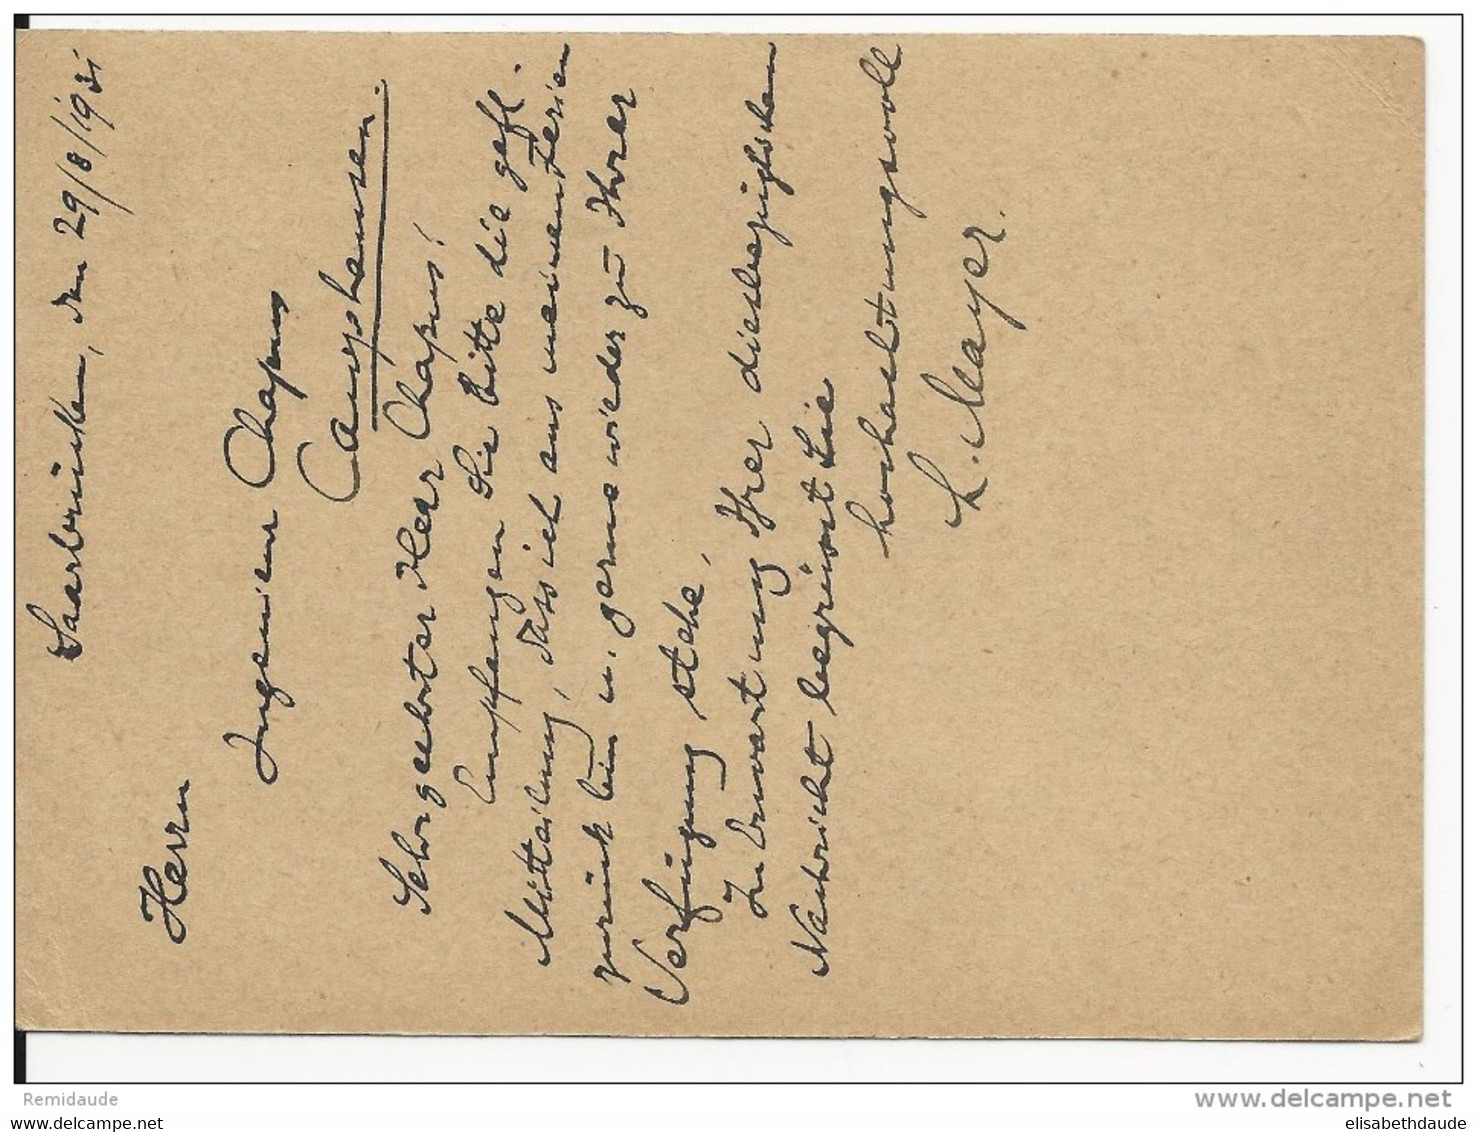 Saarbrücken, den 29/8/1931
Herrn
Ingenieur Chapus
Camphausen.
Sehrgeehrter Herr Chapus!
Empfangen Sie bitte die gefl.
Mitteilung, dass ich aus meinen Ferien
zurück bin u. gerne wieder zu Ihrer
Verfügung stehe.
In Erwartung Ihrer diesbezüglichen
Nachricht begrüsst Sie
hochachtungsvoll
L. Mayer.
Remidaude
www.delcampe.net
elisabethdaude